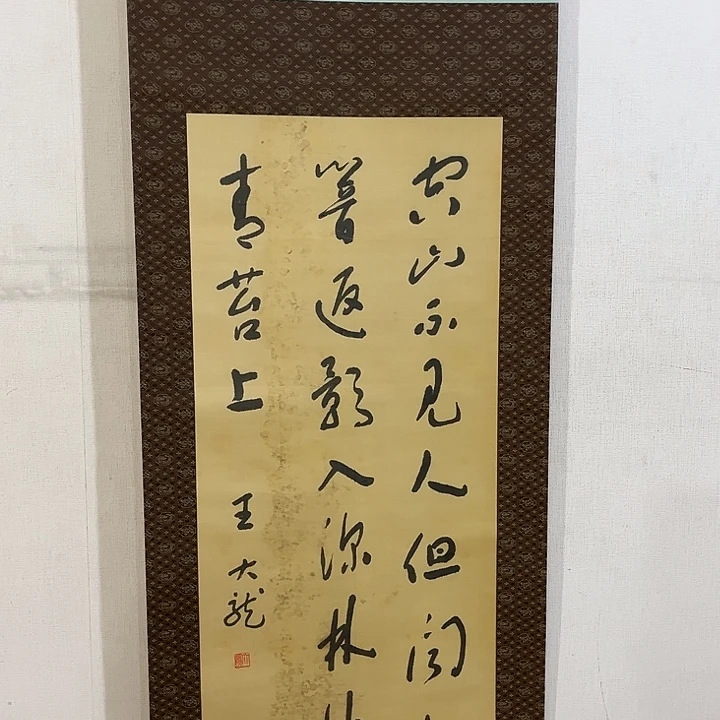 空山不見人但聞
響返影入深林
青苔上
王大龍